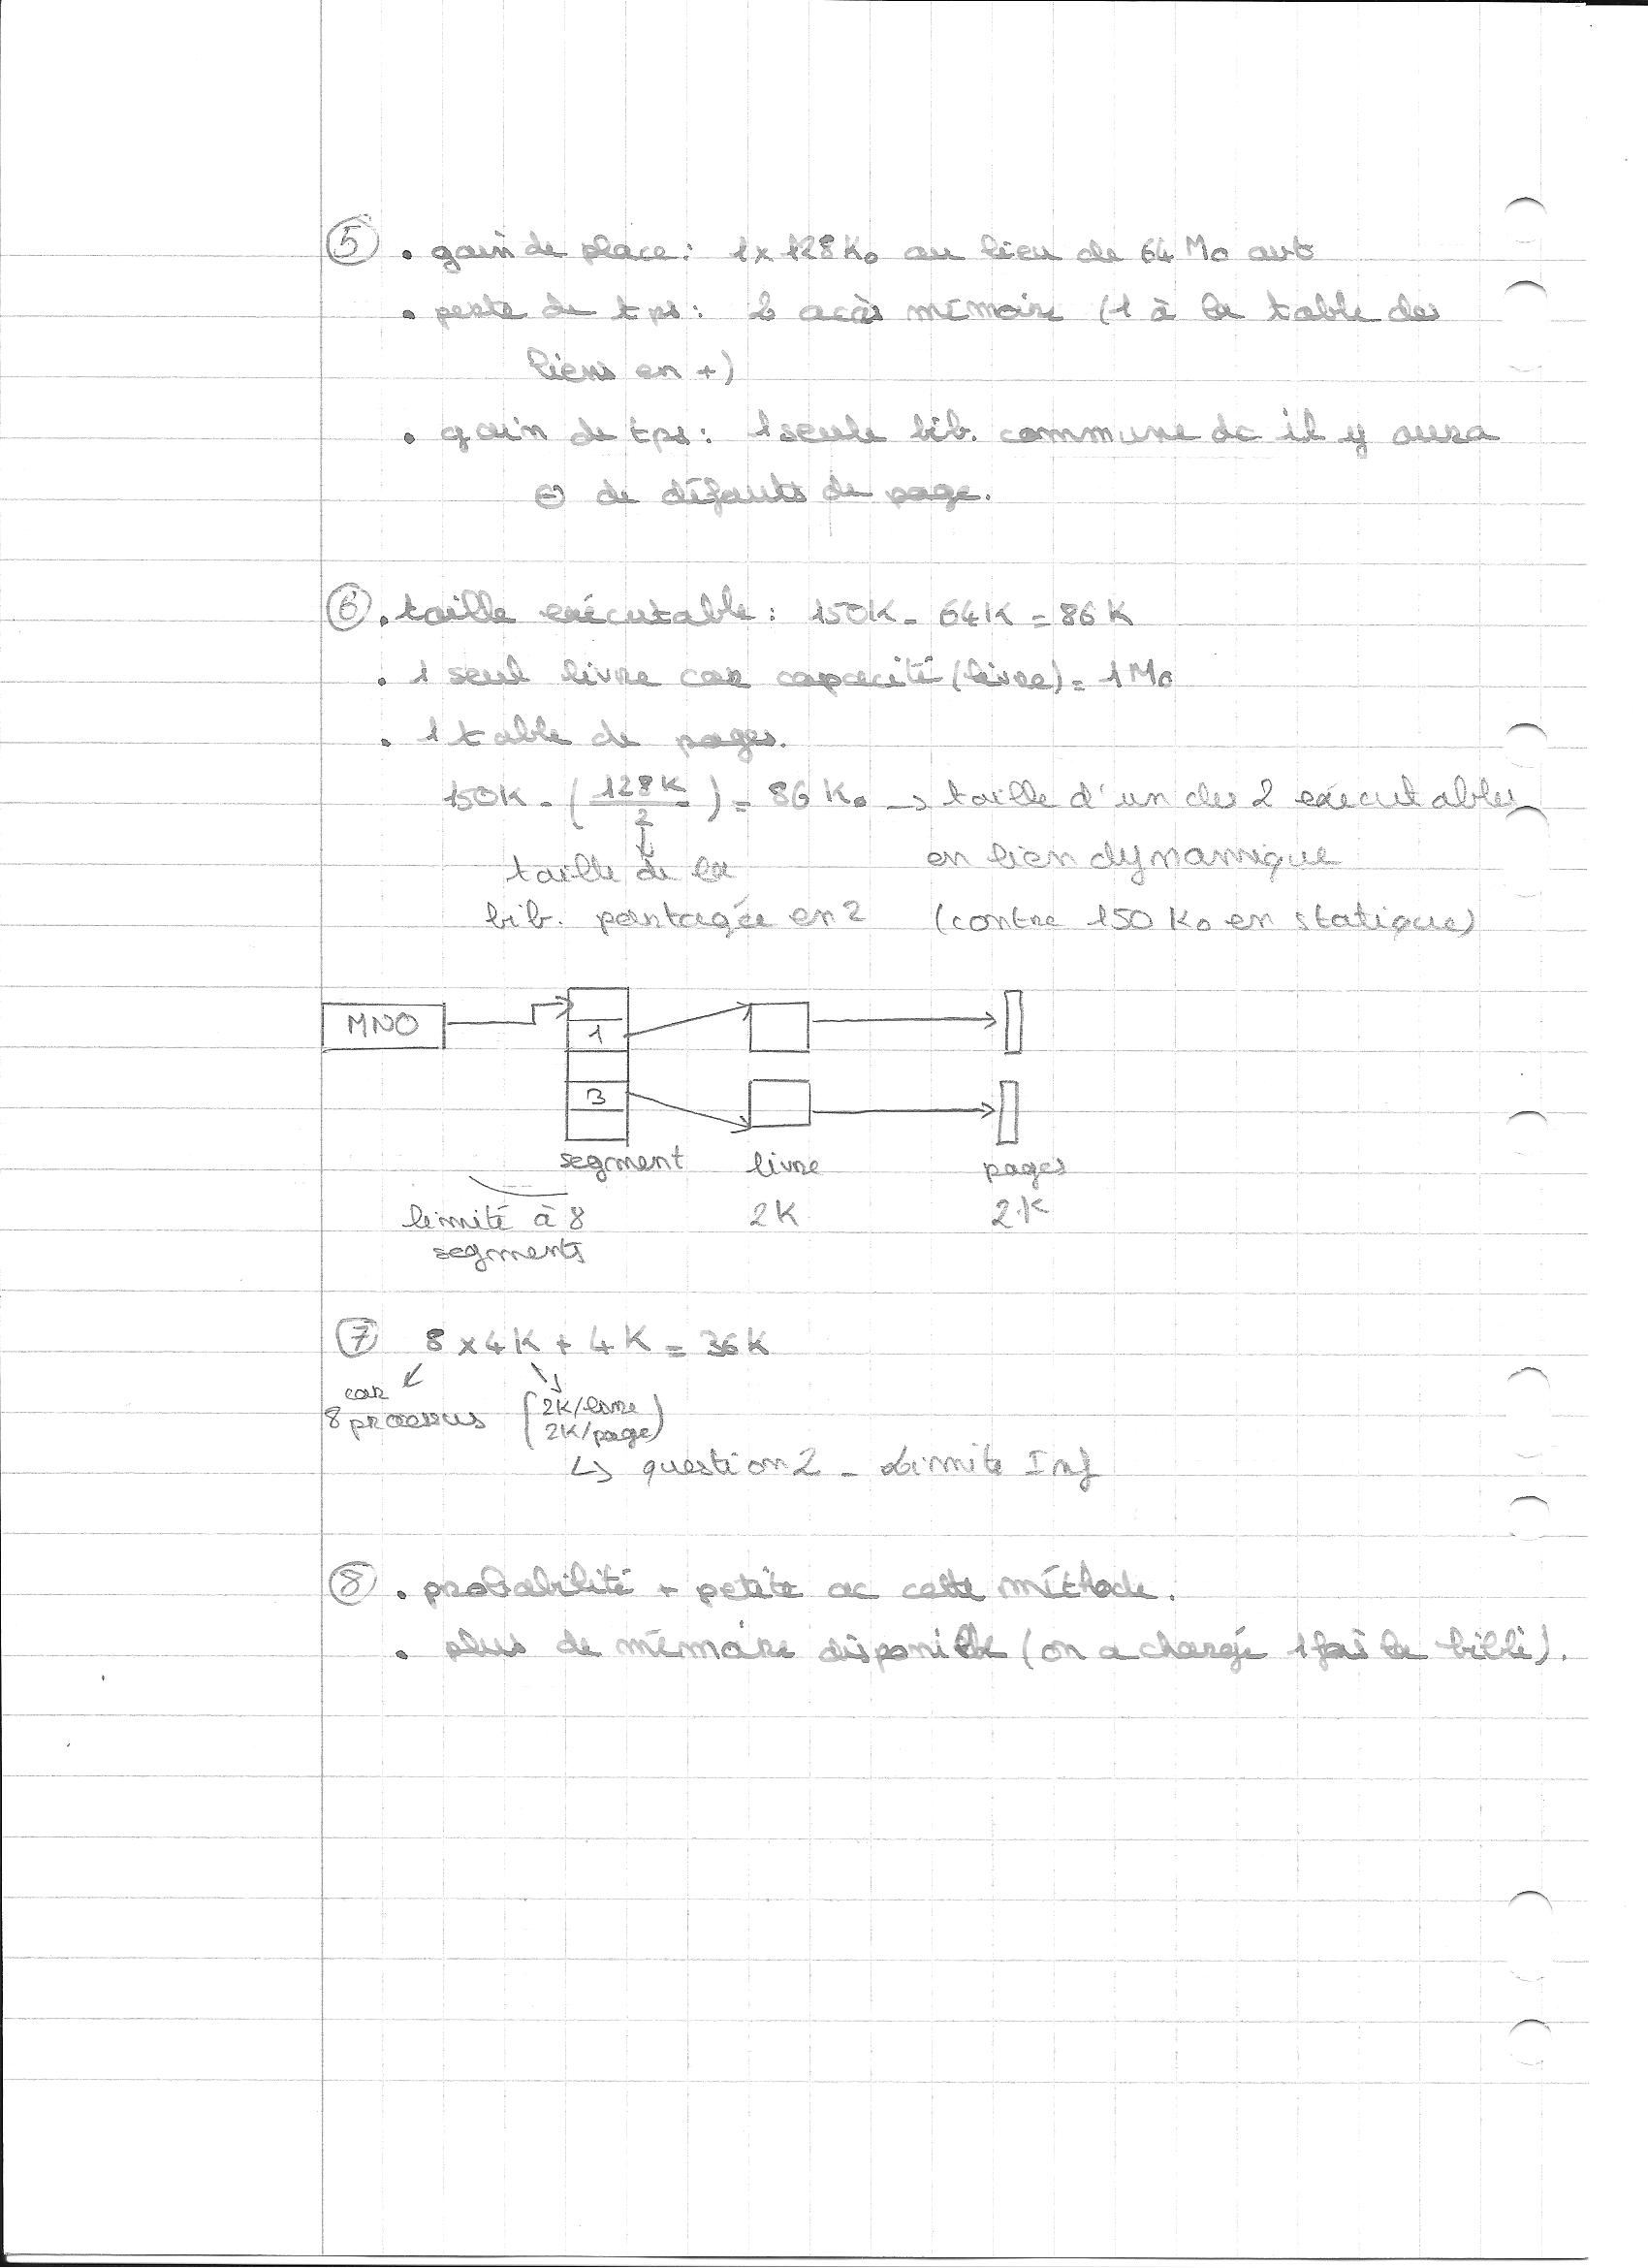 ⑤ • gain de place : 1 x 128 Ko au lieu de 64 Mo
• perte de tps : 2 accès mémoire (1 à la table des
liens en +)
• gain de tps : 1 seule bib. commune dc il y aura
⊖ de défauts de page.
⑥ • taille exécutable : 150K - 64K = 86K
• 1 seul livre car capacité (livre) = 1 Mo
• 1 table de pages.
150K - (128K / 2) = 86 Ko → taille d'un des 2 exécutables
taille de la
bib. partagée en 2
en lien dynamique
(contre 150 Ko en statique)
MNO
1
3
segment livre pages
limité à 8
segments
2K 2K
⑦ 8 x 4K + 4K = 36K
car
8 processus
(2K/livre
2K/page)
↳ question 2 - Limite Inf
⑧ • probabilité + petite ac cette méthode.
• plus de mémoire disponible (on a chargé 1 fois la bibli).